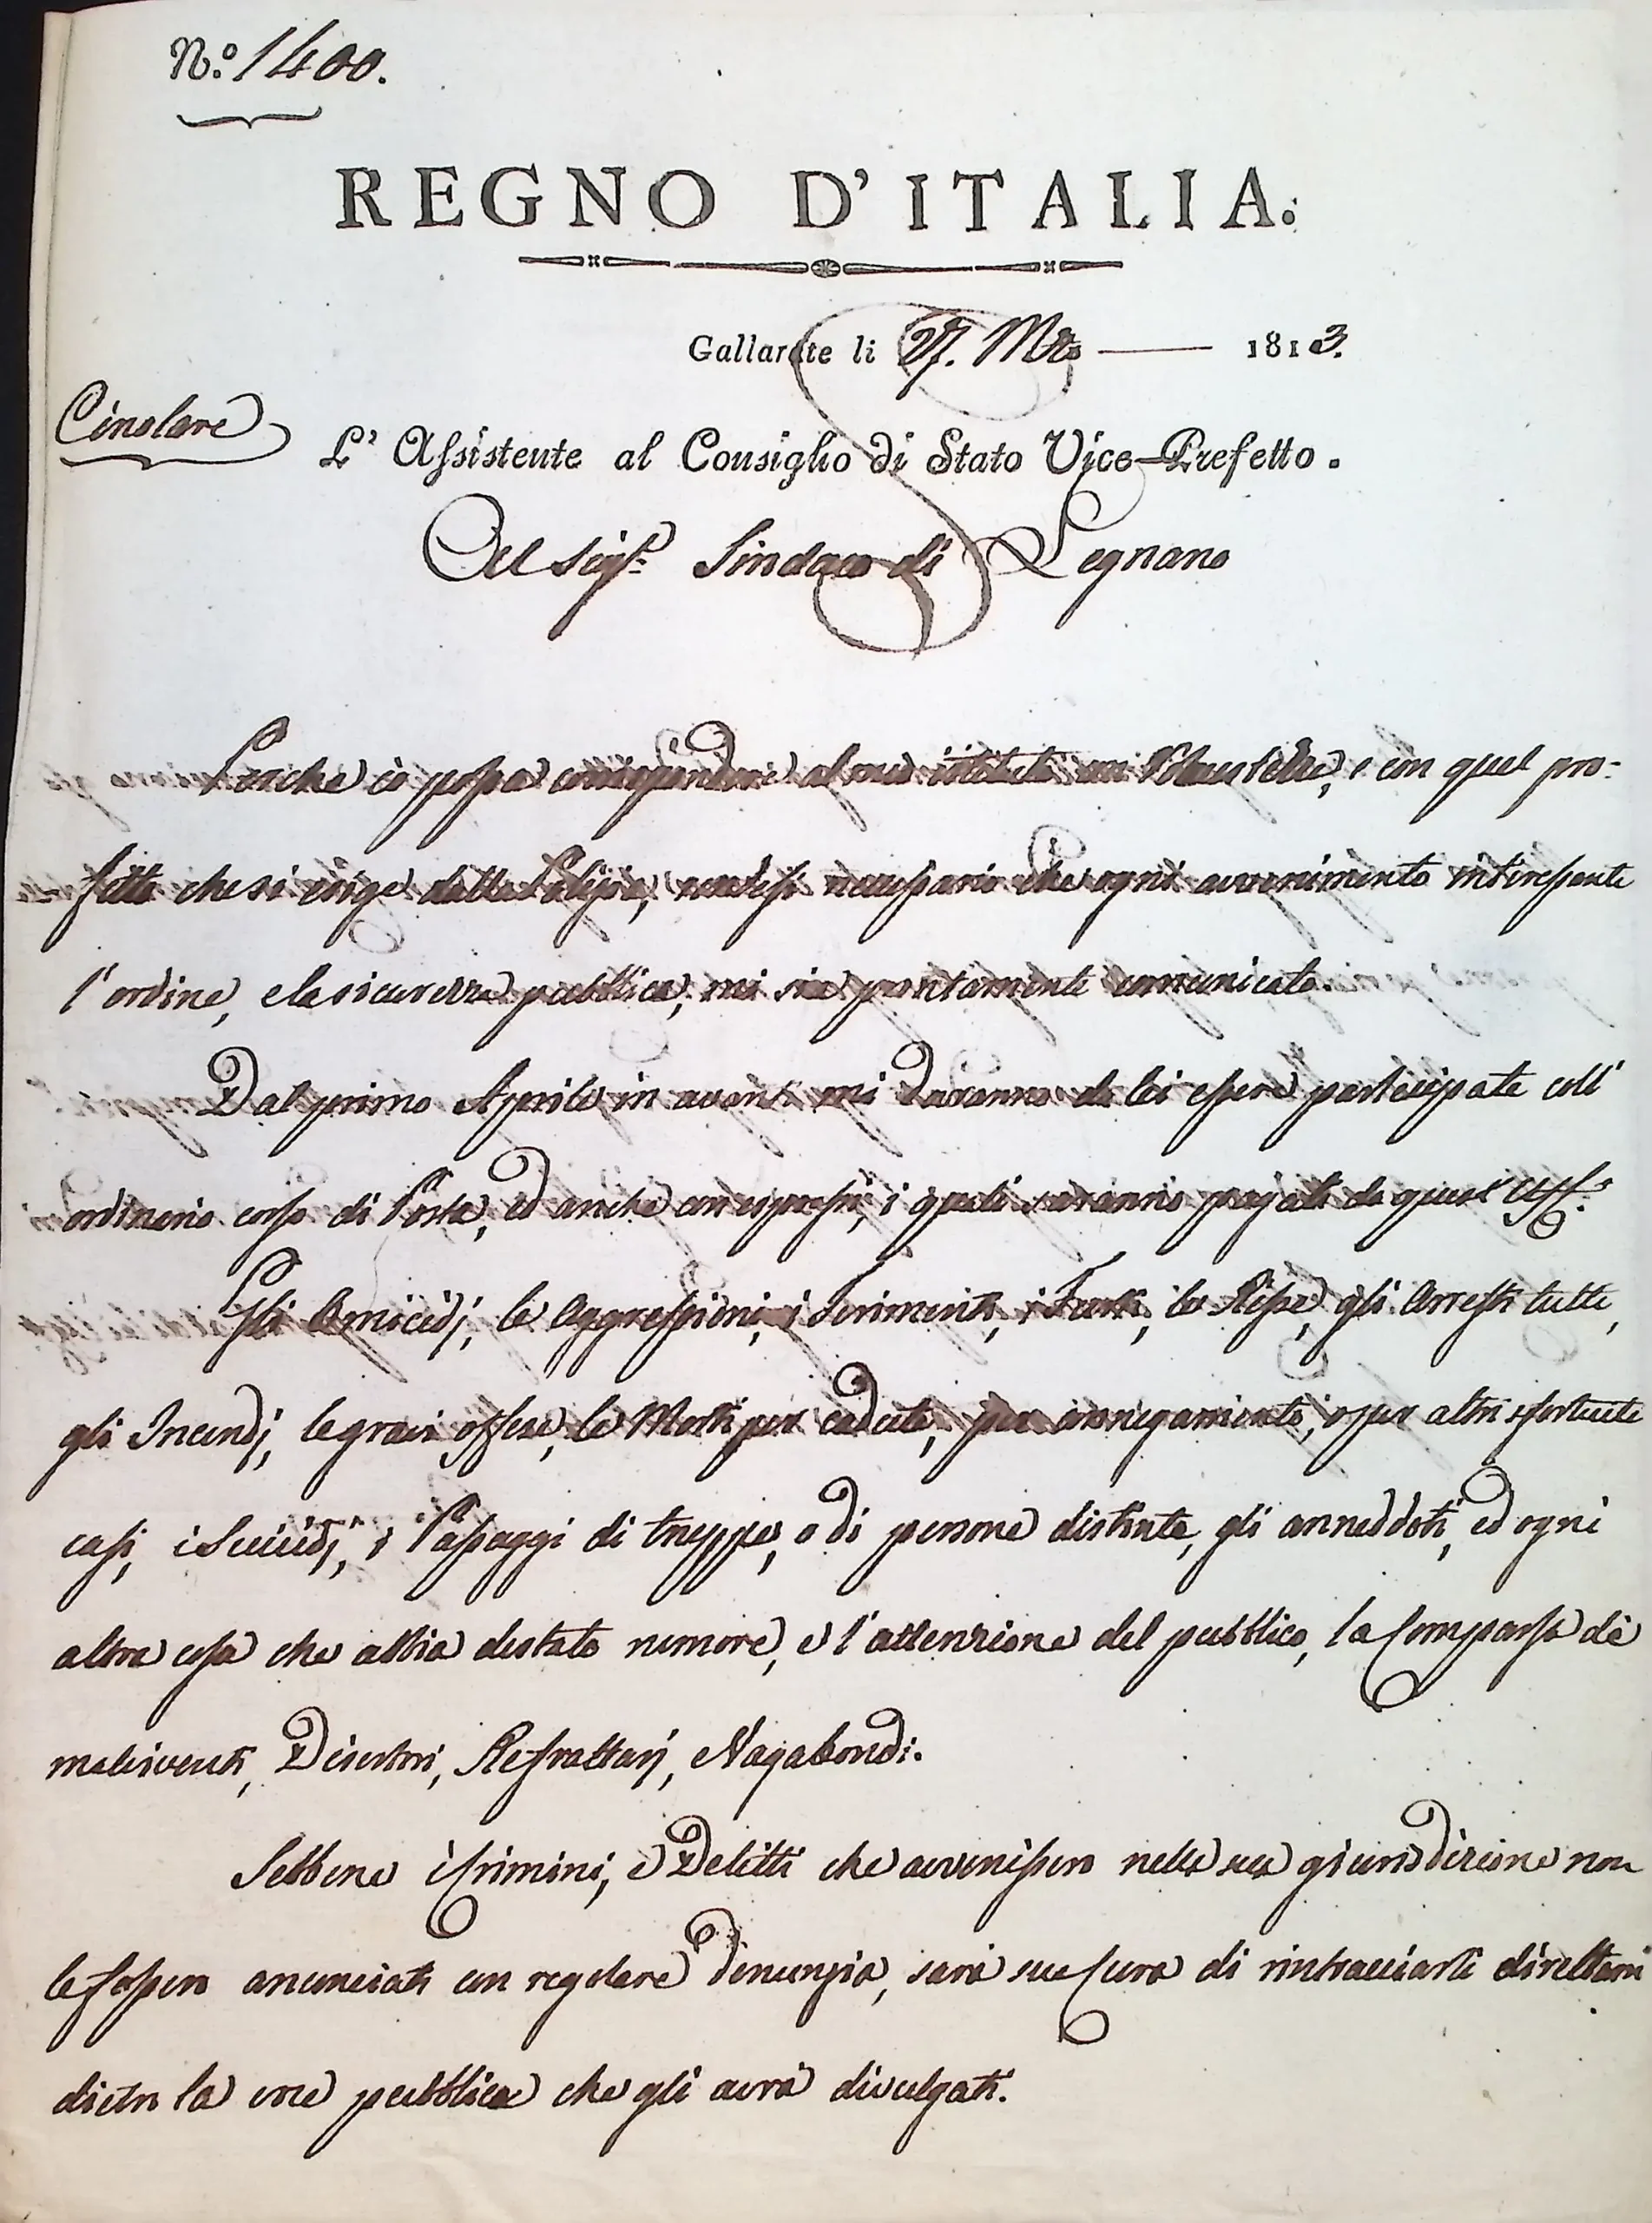 N.º 1400.
REGNO D'ITALIA.
Gallarate li 27. Mzo 1813.
Circolare
L'Assistente al Consiglio di Stato Vice-Prefetto.
Al Sigr. Sindaco di Legnano
Perche io possa corrispondere al mio istituto con e con quel pro-
fitto che si esige dalla Polizia, rendesi necessario che ogni avvenimento interessante
l'ordine, e la sicurezza pubblica, mi sia prontamente comunicato.
Dal primo Aprile in avanti mi dovranno da lei essere participate coll'
ordinario corso di Posta, ed anche con espressi, i quali saranno pagati da quest' Uff.o
Gli Omicidj, le Aggressioni, i Ferimenti, i Furti, le Risse, gli Arresti tutti,
gli Incendj, le gravi offese, le Morti per cadute, per annegamento, o per altri sfortuiti
casi, i Suicidj, i Passaggi di truppe, o di persone distinte, gli anneddoti, ed ogni
altra cosa che abbia destato rumore, e l'attenzione del pubblico, la Comparsa de
malviventi, Disertori, Refrattarj, e Vagabondi.
Sebbene i Crimini, e Delitti che avvenissero nella sua giurisdizione non
le fossero anunciati con regolare denunzia, sarà sua Cura di rintracciarli direttam
dietro la voce pubblica che gli avrà divulgati.